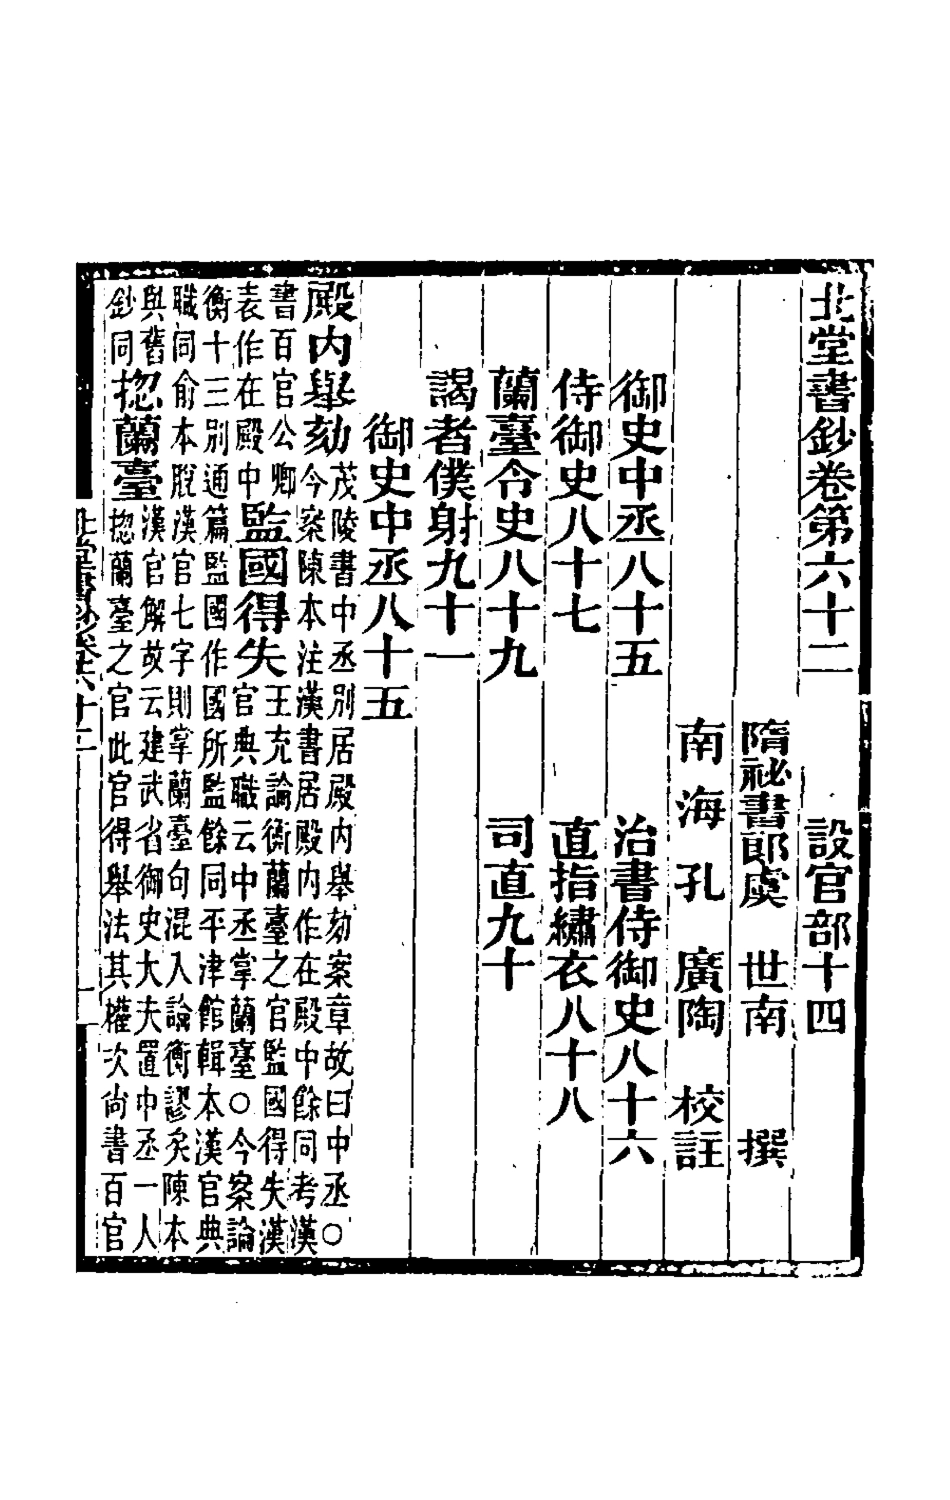 北堂書鈔卷第六十二　設官部十四
隋祕書郎虞　世南　撰
南海孔　廣陶　校註
御史中丞八十五　治書侍御史八十六
侍御史八十七　直指繡衣八十八
蘭臺令史八十九　司直九十
謁者僕射九十一
御史中丞八十五
殿内舉劾
茂陵書中丞别居殿内舉劾案章故曰中丞○
今案陳本注漢書居殿内作在殿中餘同考漢
書百官公卿
表作在殿中
監國得失
王充論衡蘭臺之官監國得失漢
官典職云中丞掌蘭臺○今案論
衡十三别通篇監國作國所監餘同平津館輯本漢官典
職同俞本脫漢官七字則掌蘭臺句混入論衡謬矣陳本
與舊
鈔同
揔蘭臺
漢官解故云建武省御史大夫置中丞一人
揔蘭臺之官此官得舉法其權次尚書百官
北堂書鈔卷六十二
一